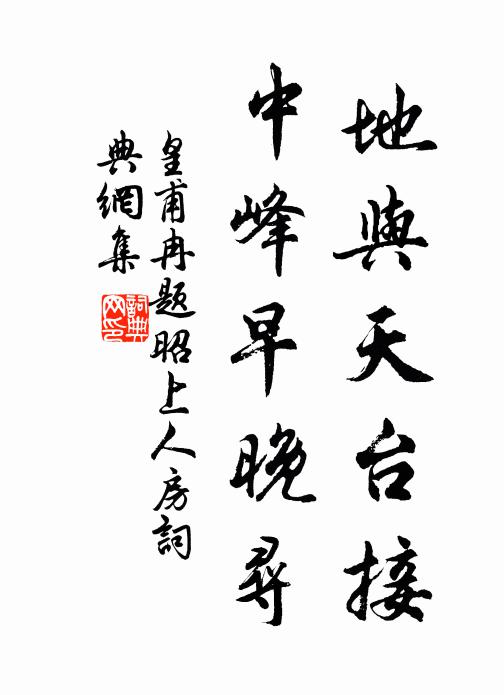 地與天台接
中峰早晚尋
皇甫冉題昭上人房詞
典網集
詞典
网印